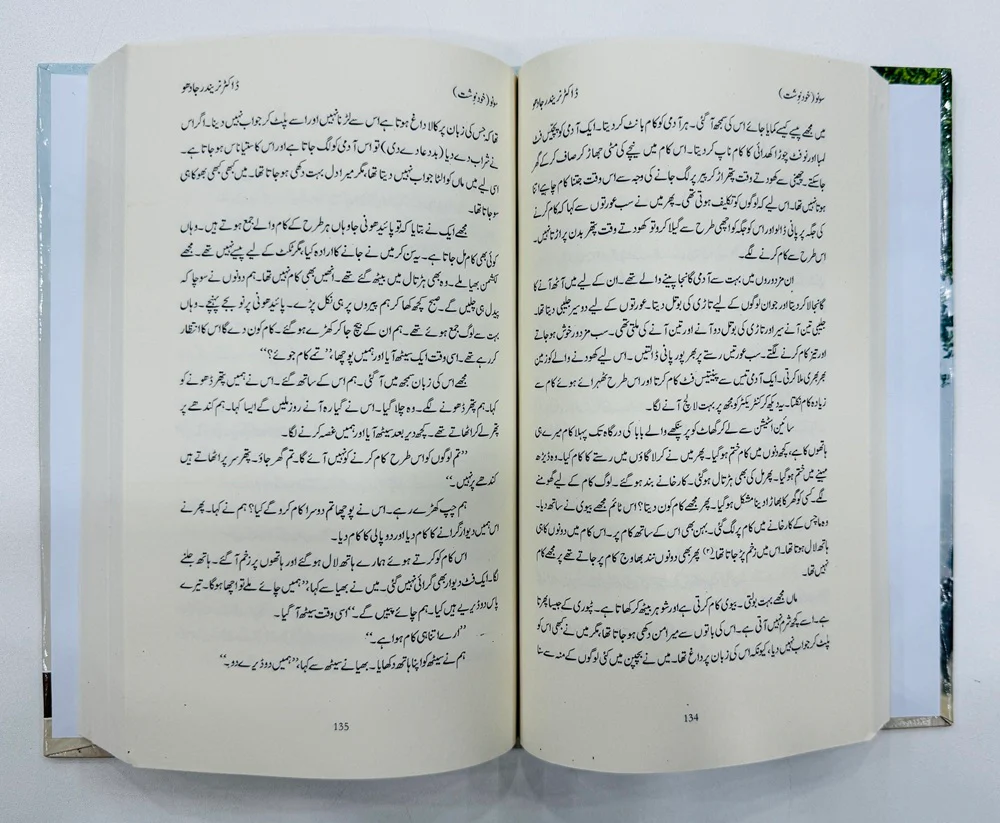 سونو (خود نوشت)
ڈاکٹر نریندر جادھو
میں مجھے پیسے کیسے کمایا جائے اس کی سمجھ آ گئی۔ ہر آدمی کو کام بانٹ کر دیتا۔ ایک آدمی کو پچیس فٹ
لمبا اور نو فٹ چوڑا کھدائی کا کام ناپ کر دیتا۔ اس کام میں نیچے کی مٹی جھاڑ کر صاف کر کے گھر
جا سکتے۔ چھینی سے کھودتے وقت پتھر اڑ کر پیر پر لگ جانے کی وجہ سے اس وقت جتنا کام چاہیے اتنا
ہوتا نہیں تھا۔ اس لیے کہ لوگوں کو تکلیف ہوتی تھی۔ پھر میں نے سب عورتوں سے کہا کہ کام کرنے
کی جگہ پر پانی ڈالو اور اس کو جگہ کو اچھی طرح سے گیلا کرو تو کھودتے وقت پتھر بدن پر اڑتا نہیں۔
اس طرح سے کام کرنے لگے۔
اِن مزدوروں میں بہت سے آدمی گانجا پینے والے تھے۔ ان کے لیے میں آٹھ آنے کا
گانجا لا کر دیتا اور جوان لوگوں کے لیے تاڑی کی بوتل دیتا۔ عورتوں کے لیے دو سیر جلیبی دیتا تھا۔
جلیبی تین آنے سیر اور تاڑی کی بوتل دو آنے اور تین آنے کی ملتی تھی۔ سب مزدور خوش ہو جاتے
اور تیز کام کرنے لگتے۔ سب عورتیں رستے پر بھرپور پانی ڈالتیں۔ اس لیے کھودنے والے کو زمین
بھربھری ملا کرتی۔ ایک آدمی تیس سے پینتیس فٹ کام کرتا اور اس طرح ٹھہرائے ہوئے کام سے
زیادہ کام نکلتا۔ یہ دیکھ کر کنٹریکٹر کو مجھ پر بہت لالچ آنے لگا۔
سائین اسٹیشن سے لے کر گھاٹ کوپر پنکھے والے بابا کی درگاہ تک پہلا کام میرے ہی
ہاتھوں کا ہے، کچھ دنوں میں کام ختم ہو گیا۔ پھر میں نے کرلا گاؤں میں رستے کا کام کیا۔ وہ ڈیڑھ
مہینے میں ختم ہو گیا۔ پھر مل کی بھی ہڑتال ہو گئی۔ کارخانے بند ہو گئے۔ لوگ کام کے لیے گھومنے
لگے۔ کسی کو گھر کا بھاڑا دینا مشکل ہو گیا۔ پھر مجھے کام کون دیتا؟ اس ٹائم مجھے بیوی نے ساتھ دیا۔
وہ ماچس کارخانے میں کام پر لگ گئی۔ بہن بھی اس کے ساتھ کام پر۔ اس کام میں دونوں کا ہی
ہاتھ لال ہوتا تھا۔ اس میں زخم پڑ جاتا تھا۔(۲) پھر بھی دونوں نند بھاوج کام پر جاتے تھے پر مجھے کام
نہیں تھا۔
ماں مجھے بہت بولتی۔ بیوی کام کرتی ہے اور شوہر بیٹھ کر کھاتا ہے۔ ٹپوری کے جیسا پھرتا
ہے۔ اسے کچھ شرم نہیں آتی ہے۔ اس کی باتوں سے میرا من دکھی ہو جاتا تھا، مگر میں نے کبھی اس کو
پلٹ کر جواب نہیں دیا، کیونکہ اس کی زبان پر داغ تھا۔ میں نے بچپن میں کئی لوگوں کے منہ سے سنا
134
سونو (خود نوشت)
ڈاکٹر نریندر جادھو
تھا کہ جس کی زبان پر کالا داغ ہوتا ہے اس سے لڑنا نہیں اور اسے پلٹ کر جواب نہیں دینا۔ اگر اس
نے شراپ دے دیا (بددعا دے دی) تو اس آدمی کو لگ جاتا ہے اور اس کا ستیاناس ہو جاتا ہے۔
اسی لیے میں ماں کو الٹا جواب نہیں دیتا تھا، مگر میرا دل بہت دکھی ہو جاتا تھا۔ میں کبھی کبھی بھوکا ہی
سو جاتا تھا۔
مجھے ایک نے بتایا کہ تو پائیدھونی جا وہاں ہر طرح کے کام والے جمع ہوتے ہیں۔ وہاں
کوئی بھی کام مل جاتا ہے۔ یہ سن کر میں نے جانے کا ارادہ کیا، مگر ٹکٹ کے لیے پیسے نہیں تھے۔ مجھے
لکشمن بھیا ملے۔ وہ بھی ہڑتال میں بیٹھ گئے تھے۔ انھیں بھی کام نہیں تھا۔ ہم دونوں نے سوچا کہ
پیدل ہی چلیں گے۔ صبح کچھ کھا کر ہم پیروں پر ہی نکل پڑے۔ پائیدھونی پر نو بجے پہنچے۔ وہاں
بہت سے لوگ جمع ہوئے تھے۔ ہم ان کے بیچ جا کر کھڑے ہو گئے۔ کام کون دے گا اس کا انتظار
کر رہے تھے۔ اسی وقت ایک سیٹھ آیا اور ہمیں پوچھا، ”تمے کام جوئے؟“
مجھے اس کی زبان سمجھ میں آ گئی۔ ہم اس کے ساتھ گئے۔ اس نے ہمیں پتھر ڈھونے کو
کہا۔ ہم پتھر ڈھونے لگے۔ وہ چلا گیا۔ اس نے گیارہ آنے روز ملیں گے ایسا کہا۔ ہم کندھے پر
پتھر لے کر اٹھاتے تھے۔ کچھ دیر بعد سیٹھ آیا اور ہمیں غصہ کرنے لگا۔
”تم لوگوں کو اس طرح کام کرنے کو نہیں آئے گا۔ تم گھر جاؤ۔ پتھر سر پر اٹھاتے ہیں
کندھے پر نہیں۔“
ہم چپ کھڑے رہے۔ اس نے پوچھا تم دوسرا کام کرو گے کیا؟ ہم نے کہا۔ پھر نے
اس ہمیں دیوار گرانے کا کام دیا اور دو پالی کا کام دیا۔
اس کام کو کرتے ہوئے ہمارے ہاتھ لال ہو گئے اور ہاتھوں پر زخم آ گئے۔ ہاتھ جلنے
لگا۔ ایک فٹ دیوار بھی گرائی نہیں گئی۔ میں نے بھیا سے کہا، ”ہمیں چائے ملے تو اچھا ہو گا۔ تیرے
پاس دو ڈیرے ہیں کیا۔ ہم چائے پییں گے۔“ اسی وقت سیٹھ آ گیا۔
”ارے! اتنا ہی کام ہوا ہے۔“
ہم نے سیٹھ کو اپنا ہاتھ دکھایا۔ بھیا نے سیٹھ سے کہا، ”ہمیں دو ڈیرے دو۔“
135